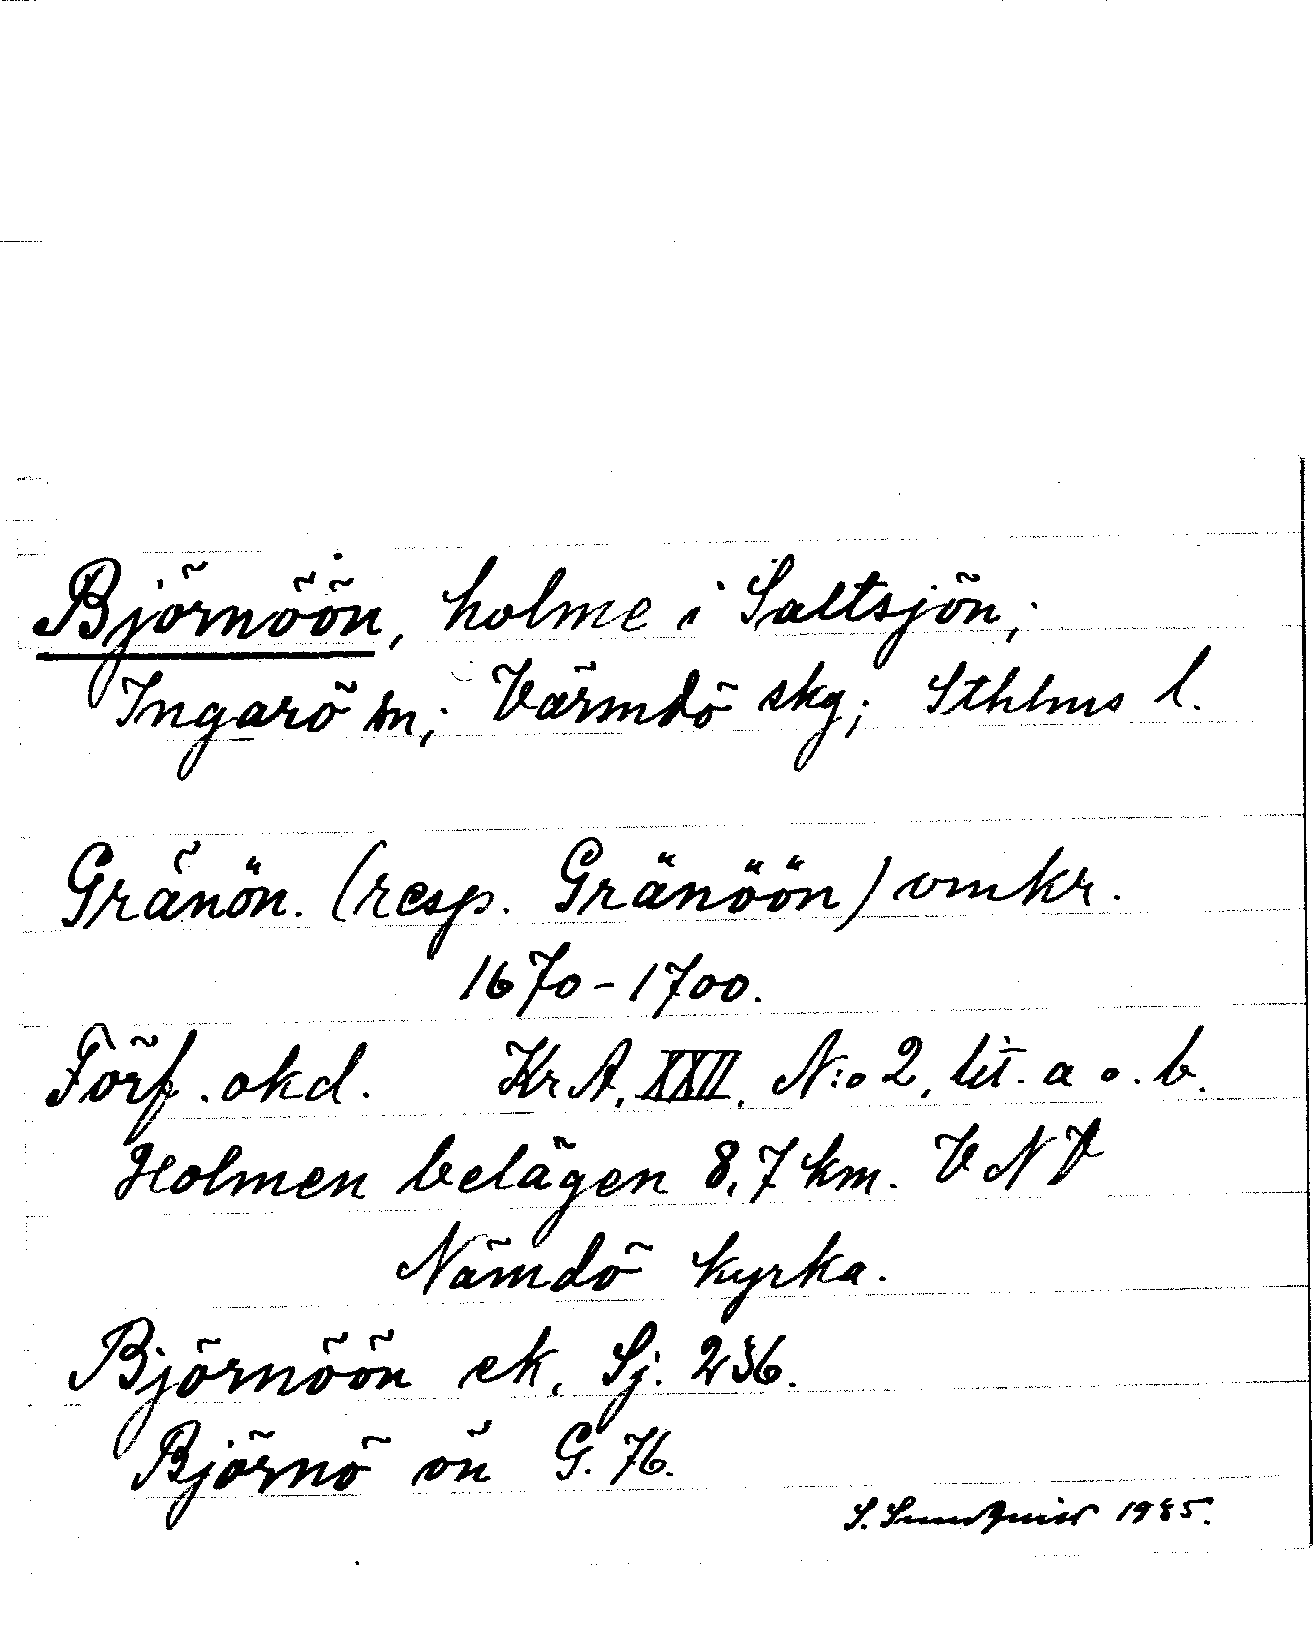 Björnöön, holme i Saltsjön;
Ingarö sn; Värmdö skg; Sthlms l.
Gränön. (resp. Gränöön) omkr.
1670-1700.
Förf. okd. Kr A. XXII. N:o 2, lit. a o. b.
Holmen belägen 8,7 km. V N V
Nämdö kyrka.
Björnöön ek. Sj. 236.
Björnö ön G. 76.
S. Sundquist 1935.